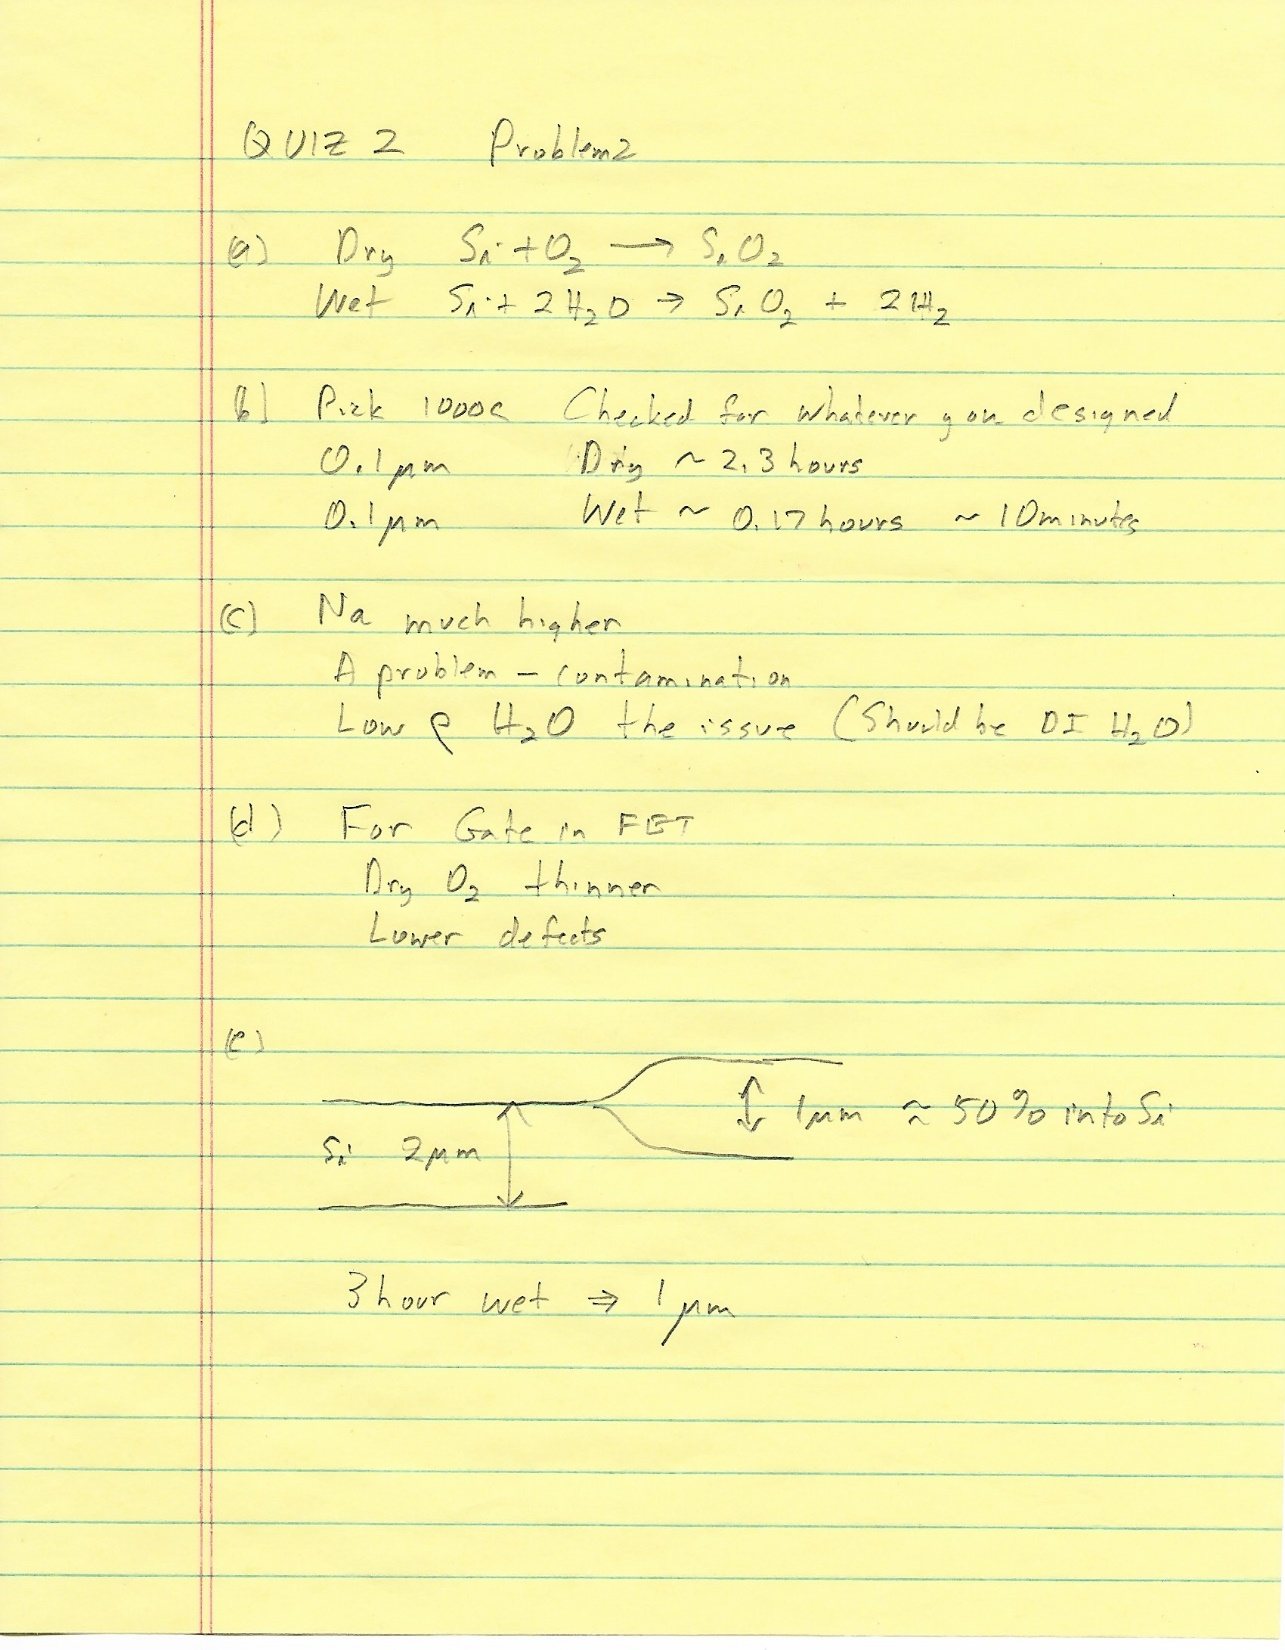 QUIZ 2 Problem 2
(a) Dry Si + O2 → SiO2
Wet Si + 2H2O → SiO2 + 2H2
(b) Pick 1000C Checked for whatever you designed
0.1μm Dry ~ 2.3 hours
0.1μm Wet ~ 0.17 hours ~ 10 minutes
(c) Na much higher
A problem – contamination
Low ρ H2O the issue (Should be DI H2O)
(d) For Gate in FET
Dry O2 thinner
Lower defects
(e)
1μm ≈ 50% into Si
Si 2μm
3 hour wet ⇒ 1μm